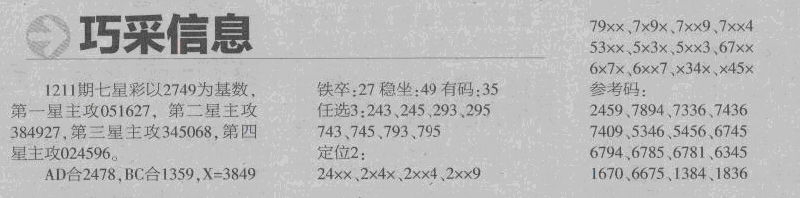 巧采信息
1211期七星彩以2749为基数,
第一星主攻051627, 第二星主攻
384927,第三星主攻345068,第四
星主攻024596。
AD合2478,BC合1359,X=3849
铁卒:27 稳坐:49 有码:35
任选3:243、245、293、295
743、745、793、795
定位2:
24××、2×4×、2××4、2××9
79××、7×9×、7××9、7××4
53××、5×3×、5××3、67××
6×7×、6××7、×34×、×45×
参考码:
2459、7894、7336、7436
7409、5346、5456、6745
6794、6785、6781、6345
1670、6675、1384、1836